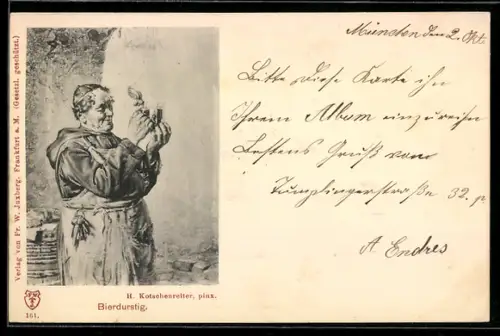 Verlag von Fr. W. Juxberg, Frankfurt a. M. (Gesetzl. geschützt.)
H. Kotschenreiter, pinx.
Bierdurstig.
161.
München den 2. Okt.
Bitte diese Karte in
Ihrem Album einzureihen
Bestens Gruß vom
Tumplingerstraße 32.
A. Endres